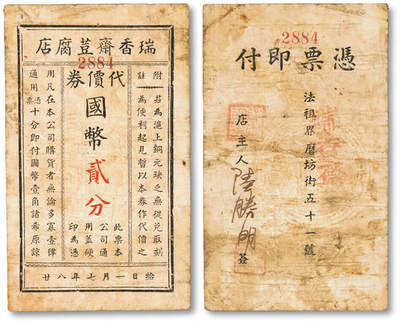 瑞香齋荳腐店
2884
代價券
國幣貳分
附註
茲為滬上銅元缺乏無從兌取剠
為便利起見暫以本券作代價之
用凡在本公司購貨者無論多寡壹律
通用憑票十分即付國幣壹角諸希原諒
此票本
公司通
用蓋硬
印為憑
廿八年七月一日給
2884
憑票即付
法租界磨坊街五十一號
店主人 陸勝明 簽